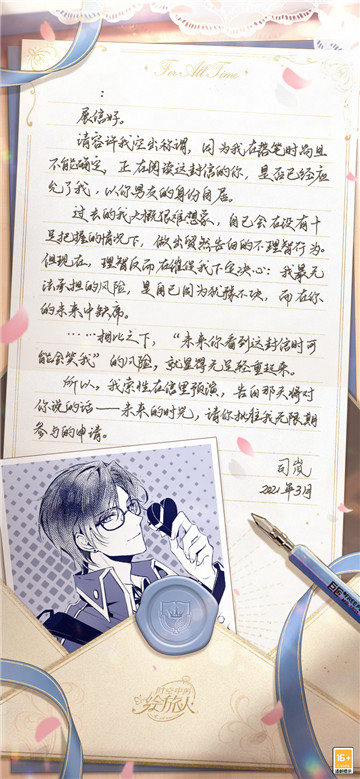 For All Time
:
展信好。
请容许我空出称谓，因为我在落笔时尚且
不能确定，正在阅读这封信的你，是否已经应
允了我，以你男友的身份自居。
过去的我大概很难想象，自己会在没有十
足把握的情况下，做出贸然告白的不理智行为。
但现在，理智反而在催促我下定决心：我最无
法承担的风险，是自己因为犹豫不决，而在你
的未来中缺席。
……相比之下，“未来你看到这封信时可
能会笑我”的风险，就显得无足轻重起来。
所以，我索性在信里预演，告白那天将对
你说的话——未来的时光，请你批准我无限期
参与的申请。
司岚
2021年3月
时空中的
绘旅人
16+